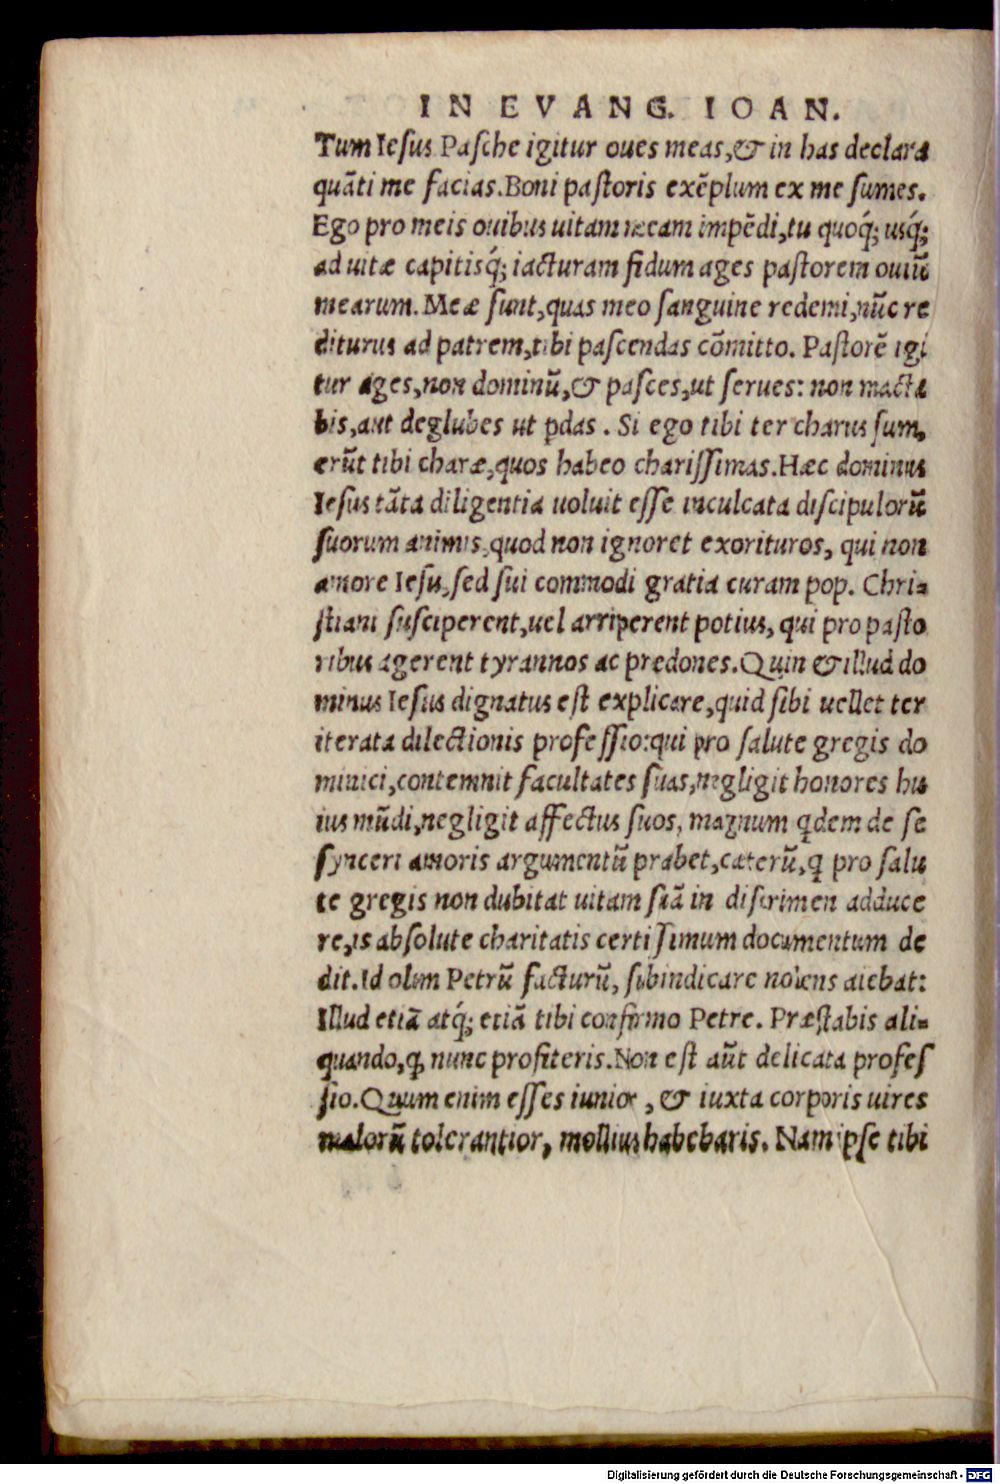 IN EVANG. IOAN.
Tum Iesus Pasche igitur oues meas, & in has declara
quāti me facias. Boni pastoris exēplum ex me sumes.
Ego pro meis ouibus uitam meam impēdi, tu quoq́; usq́;
ad uitæ capitisq́; iacturam fidum ages pastorem ouiū
mearum. Meæ sunt, quas meo sanguine redemi, nūc re
diturus ad patrem, tibi pascendas cōmitto. Pastorē igi
tur ages, non dominū, & pasces, ut serues: non macta
bis, aut deglubes ut p̄das. Si ego tibi ter charus sum,
erūt tibi charæ, quos habeo charissimas. Hæc dominus
Iesus tāta diligentia uoluit esse inculcata discipulorū
suorum animis, quod non ignoret exorituros, qui non
amore Iesu, sed sui commodi gratia curam pop. Chri-
stiani susciperent, uel arriperent potius, qui pro pasto
ribus agerent tyrannos ac predones. Quin & illud do
minus Iesus dignatus est explicare, quid sibi uellet ter
iterata dilectionis professio: qui pro salute gregis do
minici, contemnit facultates suas, negligit honores hu
ius mūdi, negligit affectus suos, magnum qdem de se
synceri amoris argumentū præbet, cæterū, q pro salu
te gregis non dubitat uitam suā in discrimen adduce
re, is absolute charitatis certissimum documentum de
dit. Id olim Petrū facturū, subindicare nolens aiebat:
Illud etiā atq́; etiā tibi confirmo Petre. Præstabis ali-
quando, q nunc profiteris. Non est aūt delicata profes
sio. Quum enim esses iunior, & iuxta corporis uires
malorū tolerantior, mollius habebaris. Nam ipse tibi
Digitalisierung gefördert durch die Deutsche Forschungsgemeinschaft - DFG